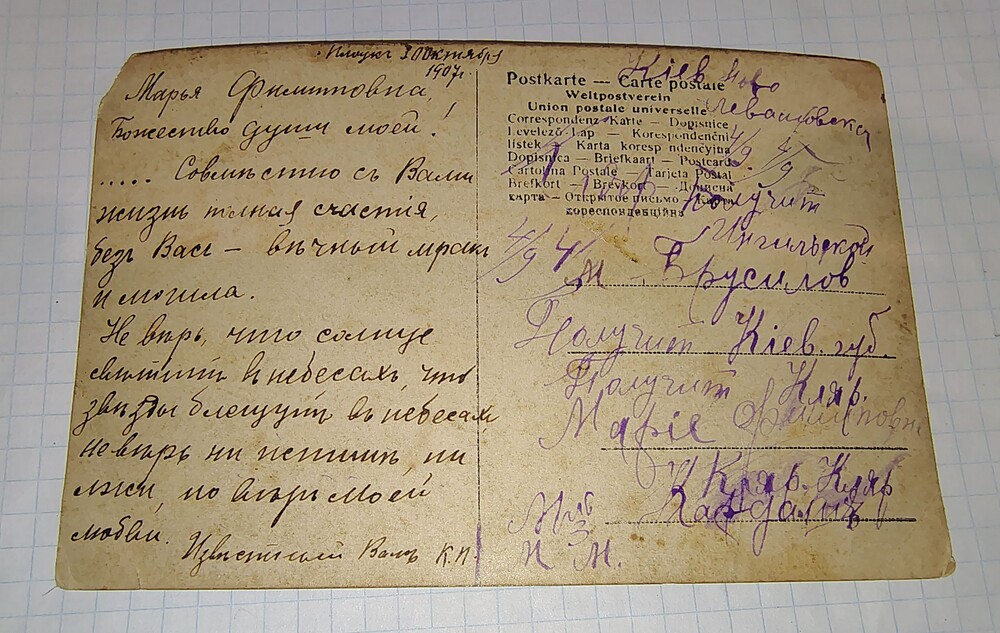 30 Октября
1907г.
Марья Филипповна,
Божество души моей!
..... Совмѣстно съ Вами
жизнь полная счастія,
безъ Васъ — вѣчный мракъ
и могила.
Не вѣрь, что солнце
свѣтитъ въ небесахъ, что
звѣзды блещутъ въ небесахъ
не вѣрь ни истинѣ, ни
лжи, но вѣрь моей
любви.
Извѣстный Вамъ К.П
Postkarte — Carte postale
Weltpostverein
Union postale universelle
Correspondenz-Karte — Dopisnice
Levelező-Lap — Korespondenční
lístek — Karta korespondencyjna
Dopisnica — Briefkaart — Postcard
Cartolina Postale — Tarjeta Postal
Brefkort — Brevkort — Дописна
карта — Открытое письмо — Карта
кореспонденційна
Кіев Ново
Левашовская
4/9 4/9
Получит
4/9 4/
М. Брусилов
Получит Кіев. губ.
Получит Кляр.
Маріе Филиповне
Кляр. Кляр
М.